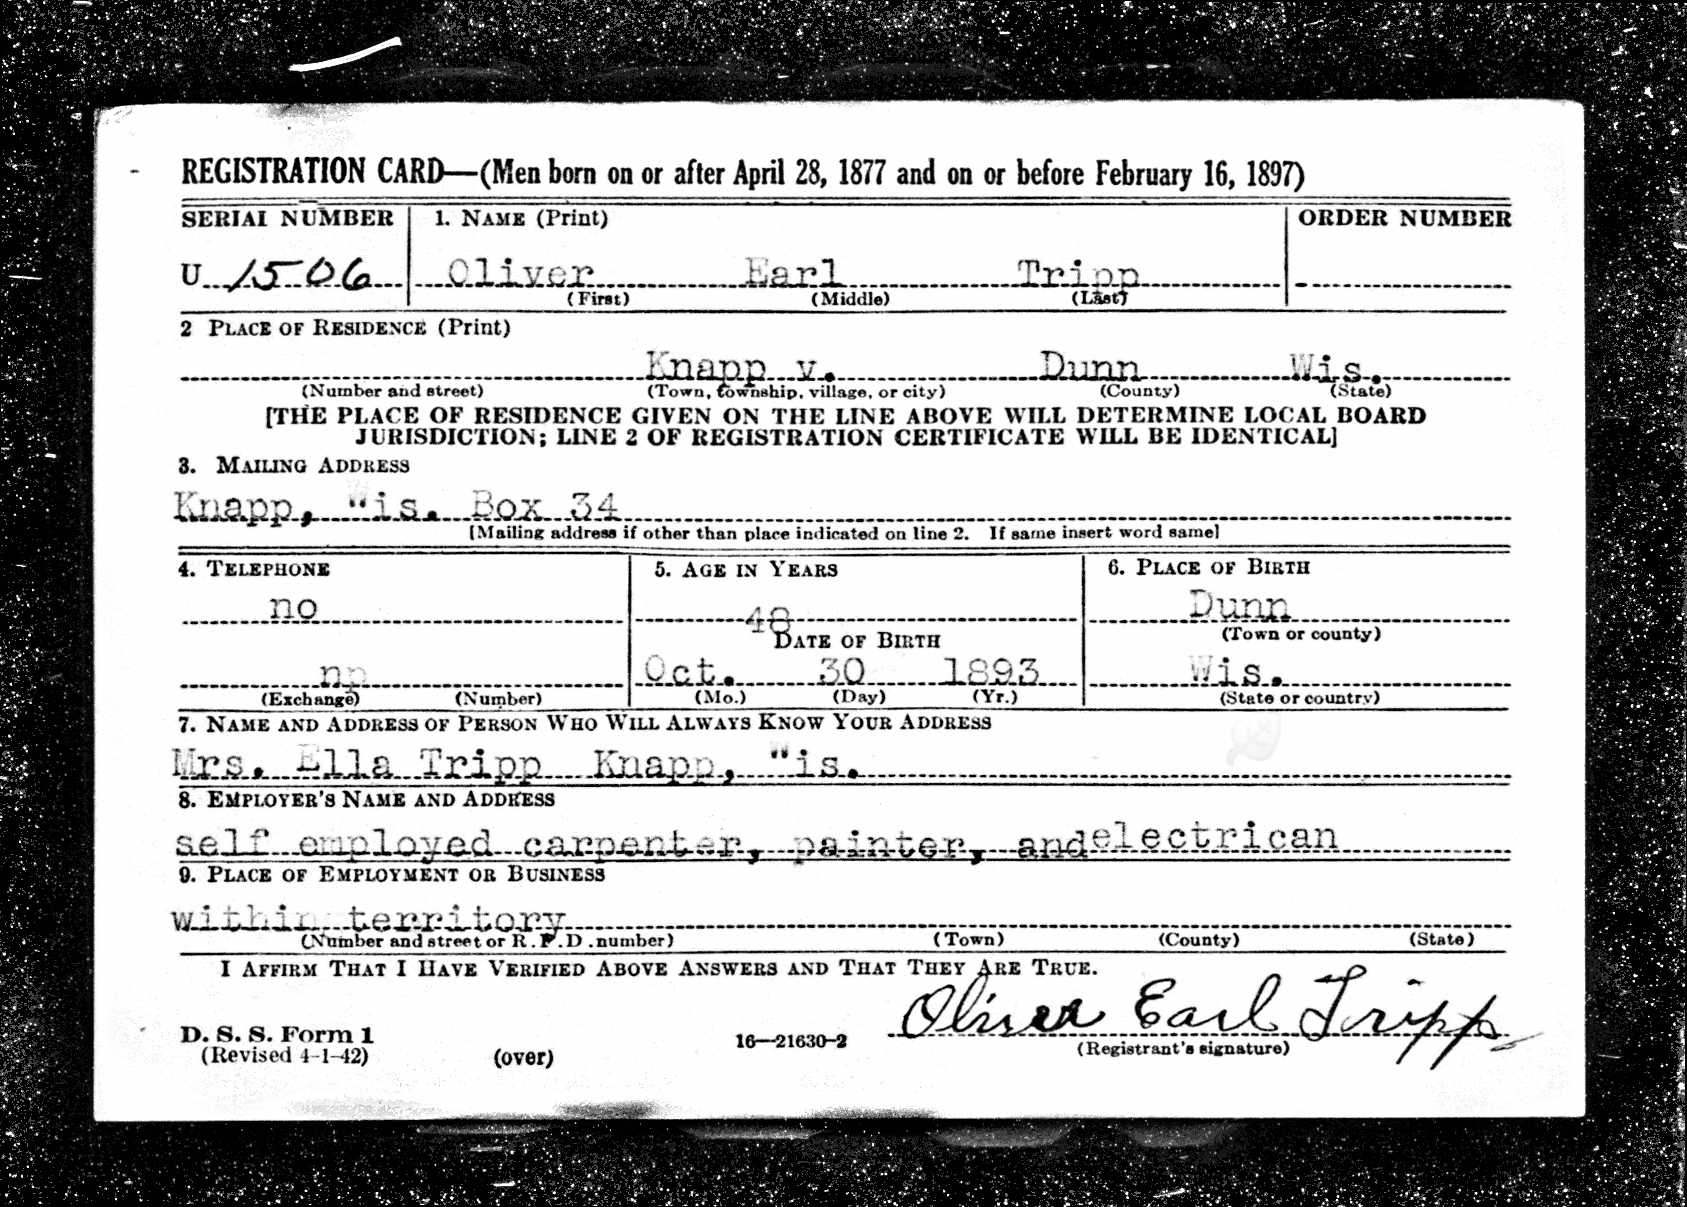 REGISTRATION CARD—(Men born on or after April 28, 1877 and on or before February 16, 1897)
SERIAL NUMBER 1. NAME (Print) ORDER NUMBER
U 1506 Oliver Earl Tripp
(First) (Middle) (Last)
2 PLACE OF RESIDENCE (Print)
Knapp v. Dunn Wis.
(Number and street) (Town, township, village, or city) (County) (State)
[THE PLACE OF RESIDENCE GIVEN ON THE LINE ABOVE WILL DETERMINE LOCAL BOARD
JURISDICTION; LINE 2 OF REGISTRATION CERTIFICATE WILL BE IDENTICAL]
3. MAILING ADDRESS
Knapp, Wis. Box 34
[Mailing address if other than place indicated on line 2. If same insert word same]
4. TELEPHONE 5. AGE IN YEARS 6. PLACE OF BIRTH
no 48 Dunn
DATE OF BIRTH (Town or county)
no Oct. 30 1893 Wis.
(Exchange) (Number) (Mo.) (Day) (Yr.) (State or country)
7. NAME AND ADDRESS OF PERSON WHO WILL ALWAYS KNOW YOUR ADDRESS
Mrs. Ella Tripp Knapp, Wis.
8. EMPLOYER'S NAME AND ADDRESS
self employed carpenter, painter, and electrican
9. PLACE OF EMPLOYMENT OR BUSINESS
within territory
(Number and street or R.F.D. number) (Town) (County) (State)
I AFFIRM THAT I HAVE VERIFIED ABOVE ANSWERS AND THAT THEY ARE TRUE.
Oliver Earl Tripp
D. S. S. Form 1
(Revised 4-1-42) (over) 16—21630-2 (Registrant's signature)